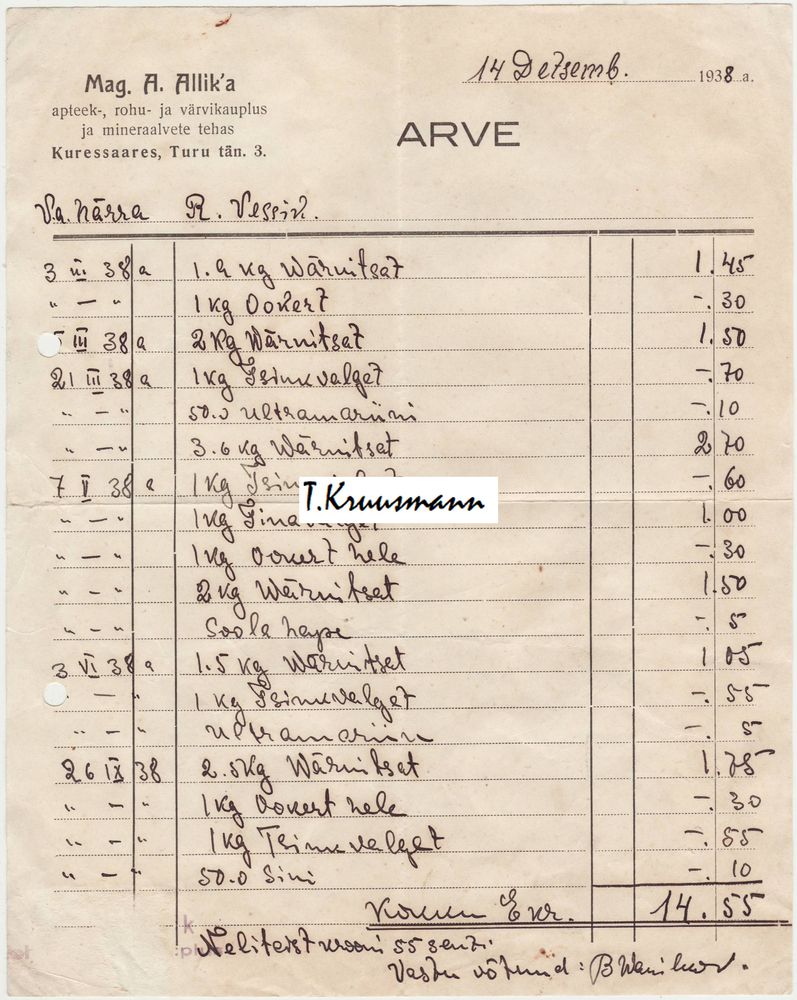 14 Detsemb. 1938 a.
Mag. A. Allik'a
apteek-, rohu- ja värvikauplus
ja mineraalvete tehas
Kuressaares, Turu tän. 3.
ARVE
Va. härra R. Vessik.
3 III 38 a 1.9 kg Wärnitsat 1.45
" — " 1 kg Ookert -.30
5 III 38 a 2 kg Wärnitsat 1.50
21 III 38 a 1 kg Tsinkvalget -.70
" — " 50.0 Ultramariini -.10
" — " 3.6 kg Wärnitsat 2 70
7 V 38 a 1 kg -.60
T.Kruusmann
" — " 1 kg 1.00
" — " 1 kg Ookert hele -.30
" — " 2 kg Wärnitsat 1.50
" — " Soola hape -. 5
3 VI 38 a 1.5 kg Wärnitsat 1 05
" — " 1 kg Tsinkvalget -. 55
" — " Ultramariin -. 5
26 IX 38 2.5 kg Wärnitsat 1.75
" — " 1 kg Ookert hele -. 30
" — " 1 kg Tsinkvalget -. 55
" — " 50.0 Sini -. 10
Kokku Ekr. 14.55
Neliteist krooni 55 senti
Vastu võtnud: